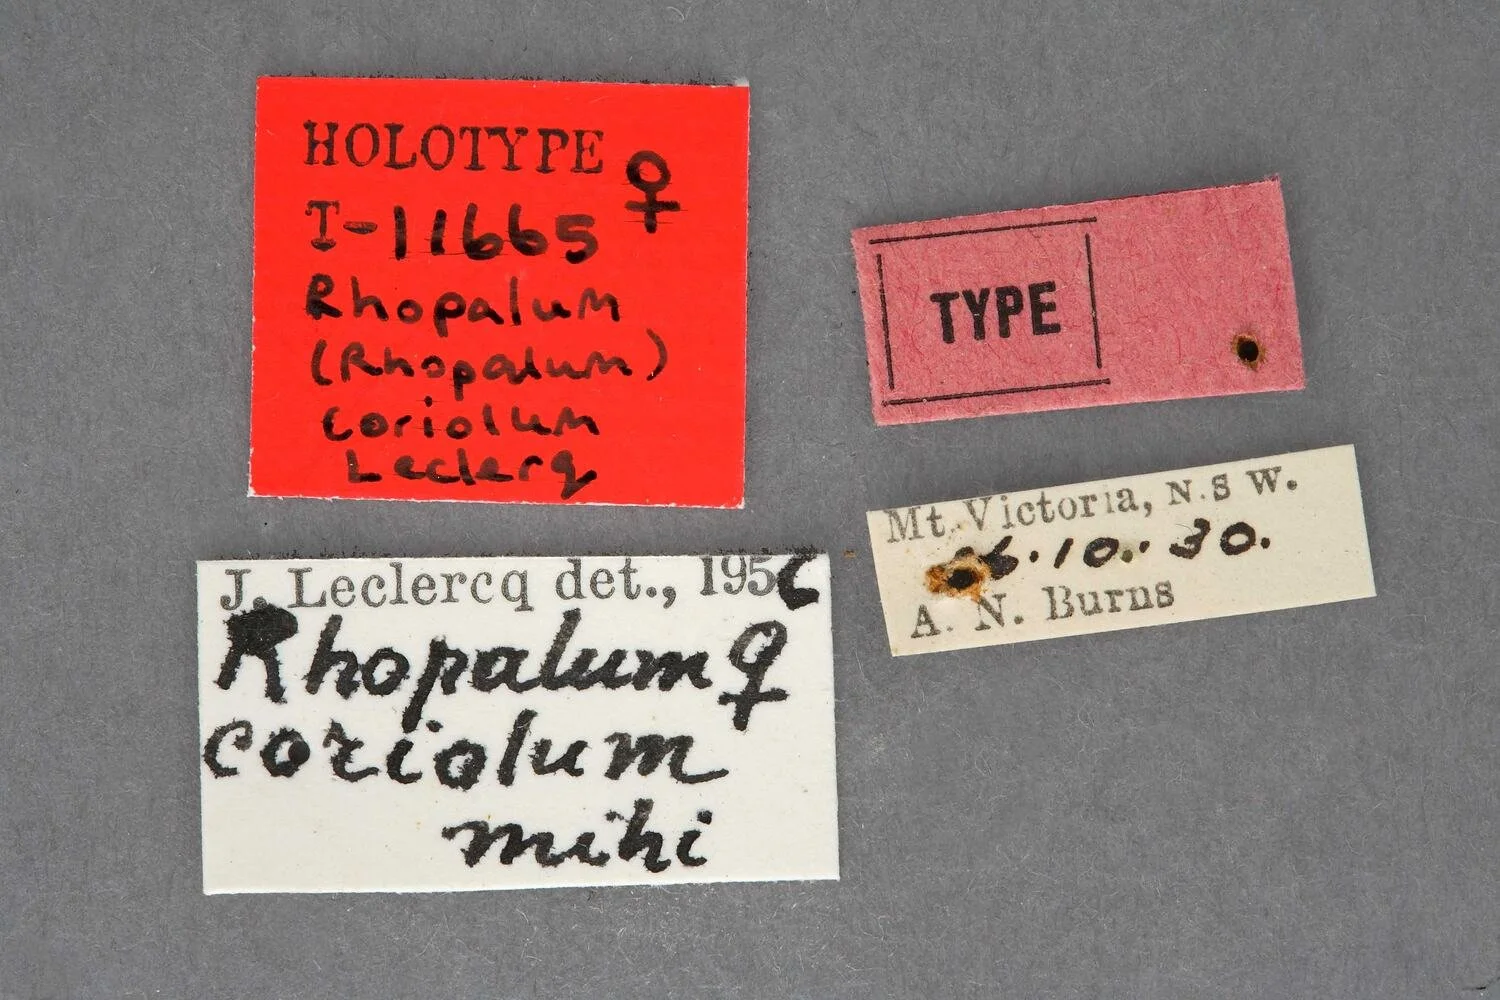 HOLOTYPE ♀
T-11665
Rhopalum
(Rhopalum)
coriolum
Leclerq
TYPE
Mt. Victoria, N.S W.
6.10.30.
A. N. Burns
J. Leclercq det., 1956
Rhopalum ♀
coriolum
mihi